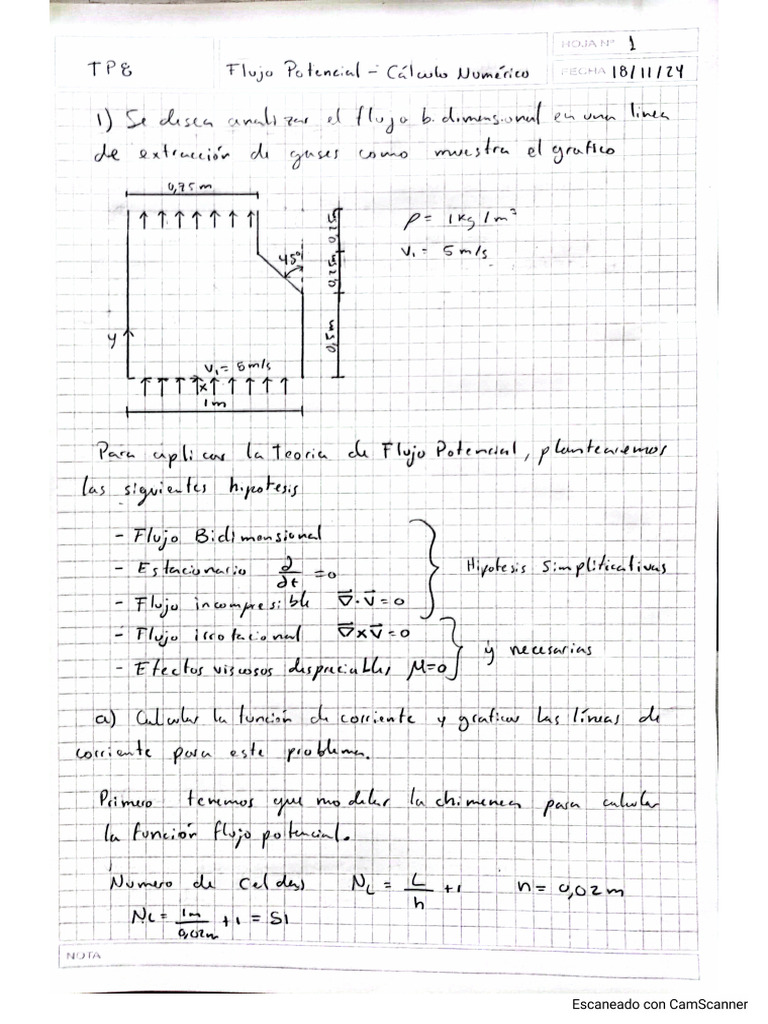 HOJA Nº 1
TP8 Flujo Potencial - Cálculo Numérico FECHA 18/11/24
1) Se desea analizar el flujo bidimensional en una linea
de extracción de gases como muestra el grafico
0,75 m
ρ = 1 kg/m³
V₁ = 5 m/s
45°
0,25
0,25
0,5m
y
V₁ = 5 m/s
x
1 m
Para aplicar la Teoria de Flujo Potencial, plantearemos
las siguientes hipotesis
- Flujo Bidimensional
- Estacionario ∂/∂t = 0
- Flujo incompresible ∇⃗·V⃗ = 0
Hipotesis Simplificativas
- Flujo irrotacional ∇⃗×V⃗ = 0
- Efectos viscosos despreciables μ=0
y necesarias
a) Calcular la función de corriente y graficar las líneas de
corriente para este problema.
Primero tenemos que modelar la chimenea para calcular
la función flujo potencial.
Numero de Celdas N_L = L/h + 1 h = 0,02 m
N_L = 1m/0,02m + 1 = 51
NOTA
Escaneado con CamScanner